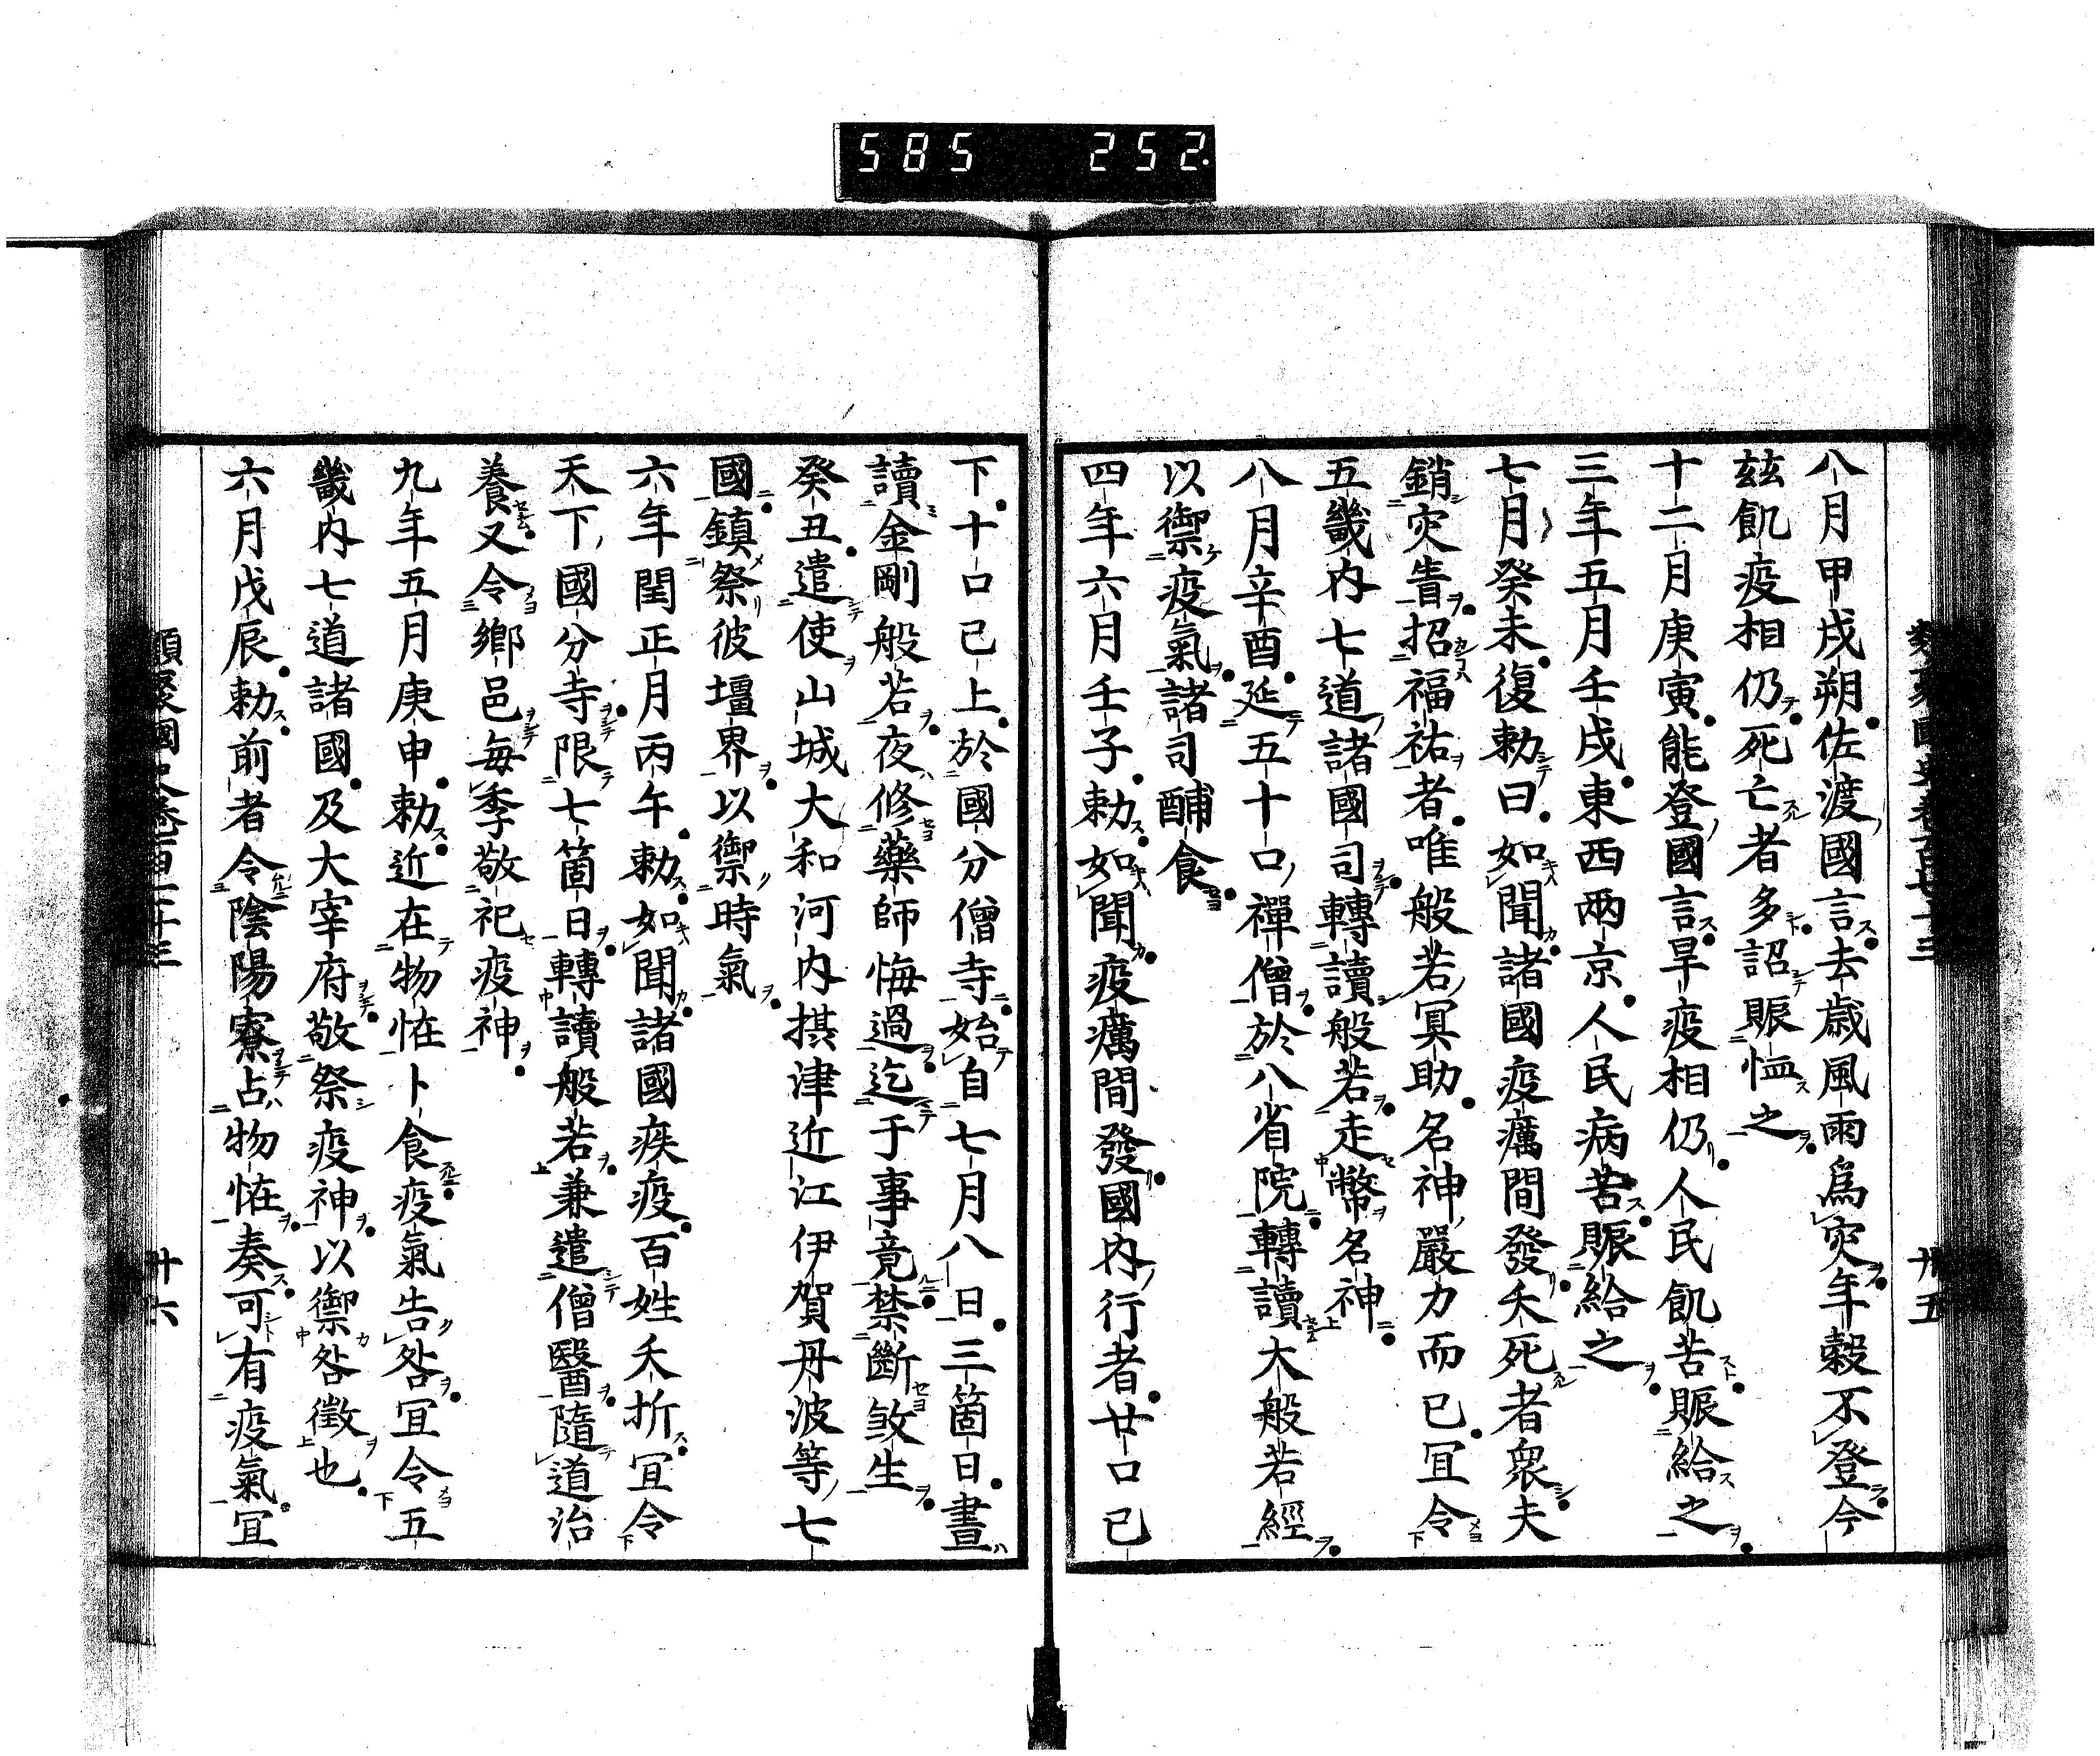 585 252
八月甲戌朔佐渡國言去歳風雨爲災年穀不登今
玆飢疫相仍死亡者多詔賑恤之
十二月庚寅能登國言旱疫相仍人民飢苦賑給之
三年五月壬戌東西兩京人民病苦賑給之
七月癸未復勅曰如聞諸國疫癘間發夭死者衆夫
銷災眚招福祐者唯般若冥助名神嚴力而已宜令
五畿内七道諸國司轉讀般若走幣名神
八月辛酉延五十口禪僧於八省院轉讀大般若經
以禦疫氣諸司酺食
四年六月壬子勅如聞疫癘間發國内行者廿口已
下十口已上於國分僧寺始自七月八日三箇日晝
讀金剛般若夜修藥師悔過迄于事竟禁斷敎生
癸丑遣使山城大和河内摂津近江伊賀丹波等七
國鎮祭彼壃界以禦時氣
六年閏正月丙午勅如聞諸國疾疫百姓夭折宜令
天下國分寺限七箇日轉讀般若兼遣僧醫隨道治
養又令鄉邑每季敬祀疫神
九年五月庚申勅近在物恠卜食疫氣告咎宜令五
畿内七道諸國及大宰府敬祭疫神以禦咎徵也
六月戊辰勅前者令陰陽寮占物恠奏可有疫氣宜